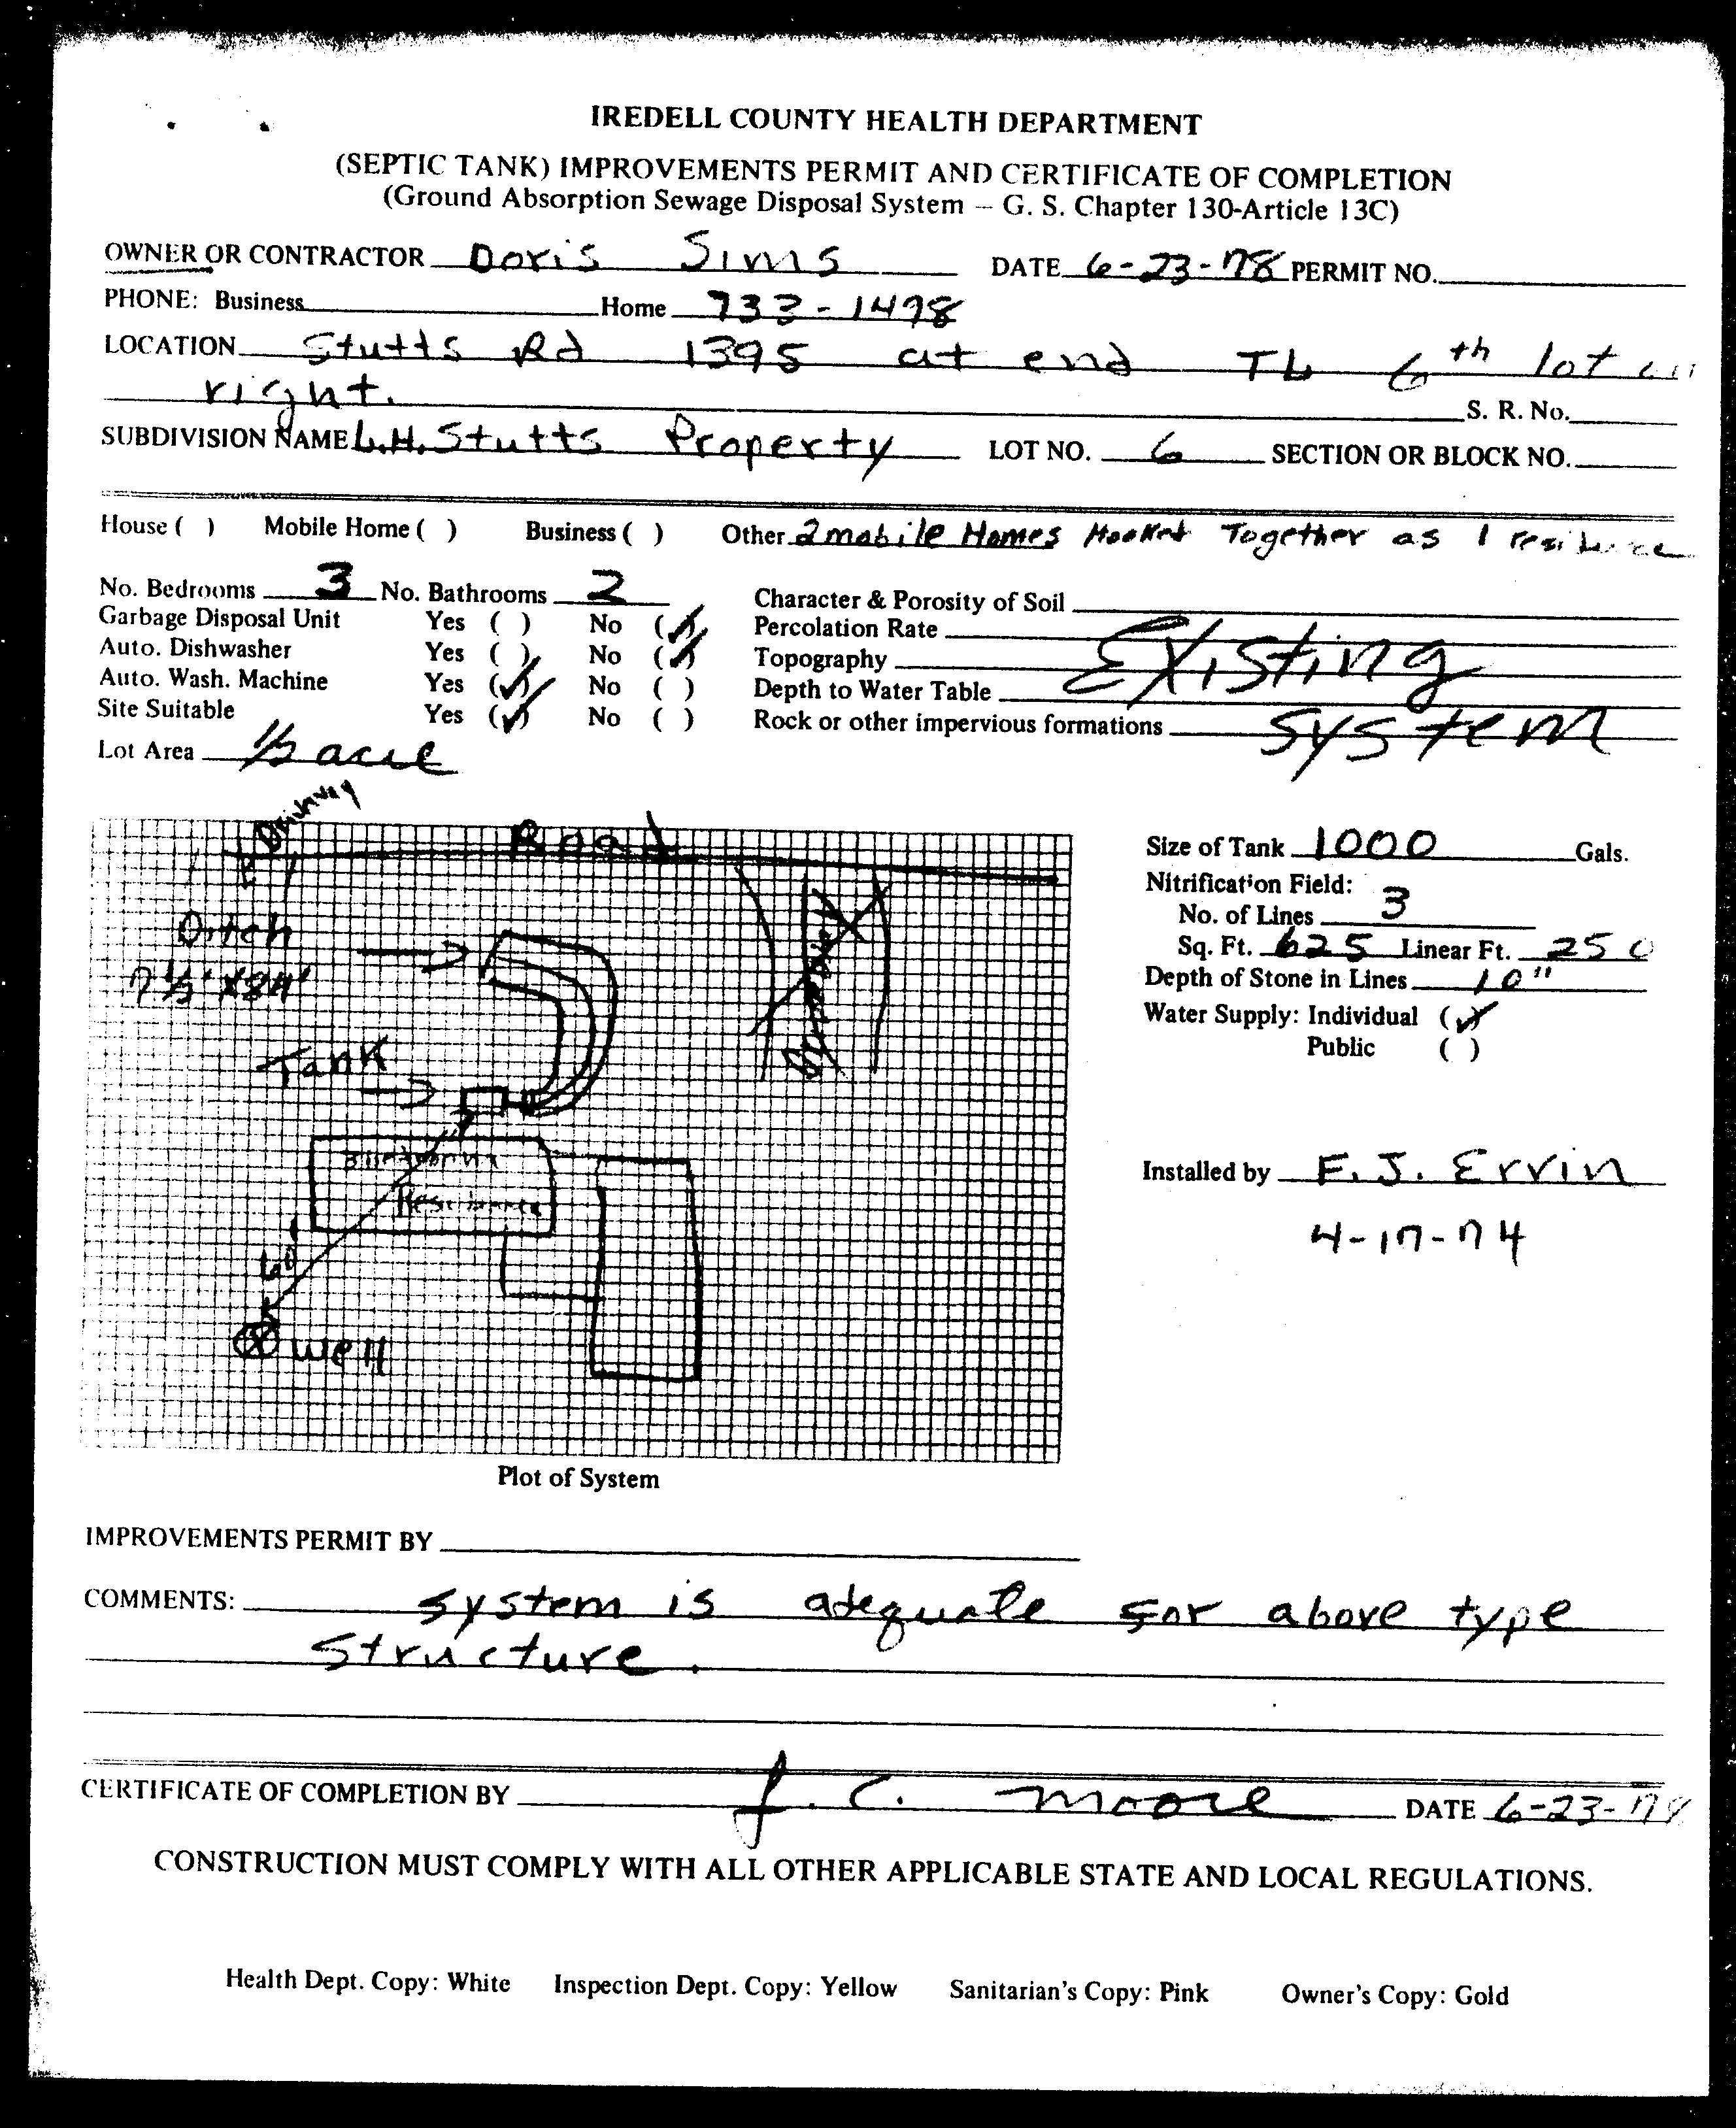 IREDELL COUNTY HEALTH DEPARTMENT
(SEPTIC TANK) IMPROVEMENTS PERMIT AND CERTIFICATE OF COMPLETION
(Ground Absorption Sewage Disposal System — G. S. Chapter 130-Article 13C)
OWNER OR CONTRACTOR Doris Sims DATE 6-23-78 PERMIT NO.
PHONE: Business Home 733-1498
LOCATION Stutts Rd 1395 at end TL 6th lot on
right. S. R. No.
SUBDIVISION NAME L.H. Stutts Property LOT NO. 6 SECTION OR BLOCK NO.
House ( ) Mobile Home ( ) Business ( ) Other 2 mobile Homes Hooked Together as 1 residence
No. Bedrooms 3 No. Bathrooms 2 Character & Porosity of Soil
Garbage Disposal Unit Yes ( ) No (✓) Percolation Rate
Auto. Dishwasher Yes ( ) No (✓) Topography Existing
Auto. Wash. Machine Yes (✓) No ( ) Depth to Water Table
Site Suitable Yes (✓) No ( ) Rock or other impervious formations system
Lot Area 1/2 acre
Driway
Road
Size of Tank 1000 Gals.
Nitrification Field:
No. of Lines 3
Ditch
Sq. Ft. 625 Linear Ft. 250
7 1/2' X 84'
Depth of Stone in Lines 10"
Water Supply: Individual (✓)
Public ( )
Tank
Residence
Installed by F. J. Ervin
4-17-74
60'
well
Plot of System
IMPROVEMENTS PERMIT BY
COMMENTS: system is adequate for above type
structure.
CERTIFICATE OF COMPLETION BY J. C. Moore DATE 6-23-78
CONSTRUCTION MUST COMPLY WITH ALL OTHER APPLICABLE STATE AND LOCAL REGULATIONS.
Health Dept. Copy: White Inspection Dept. Copy: Yellow Sanitarian's Copy: Pink Owner's Copy: Gold